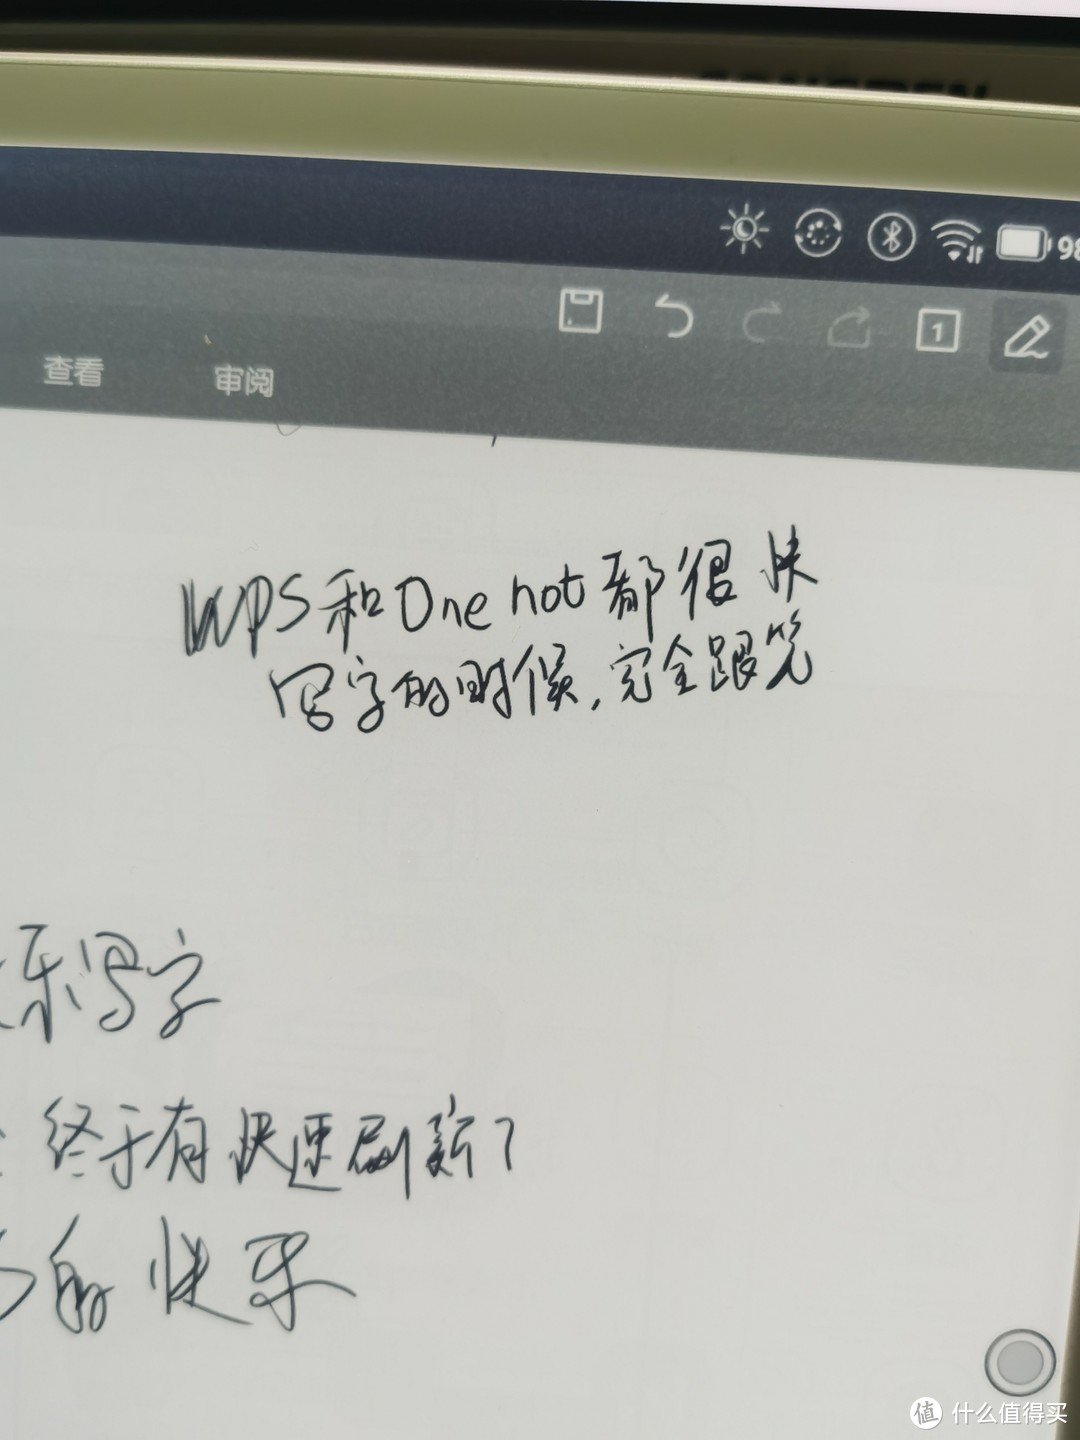 98
查看 审阅
WPS和Onenot都很快
写字的时候,完全跟
乐写字
终于有快速刷新了
的快乐
值 什么值得买